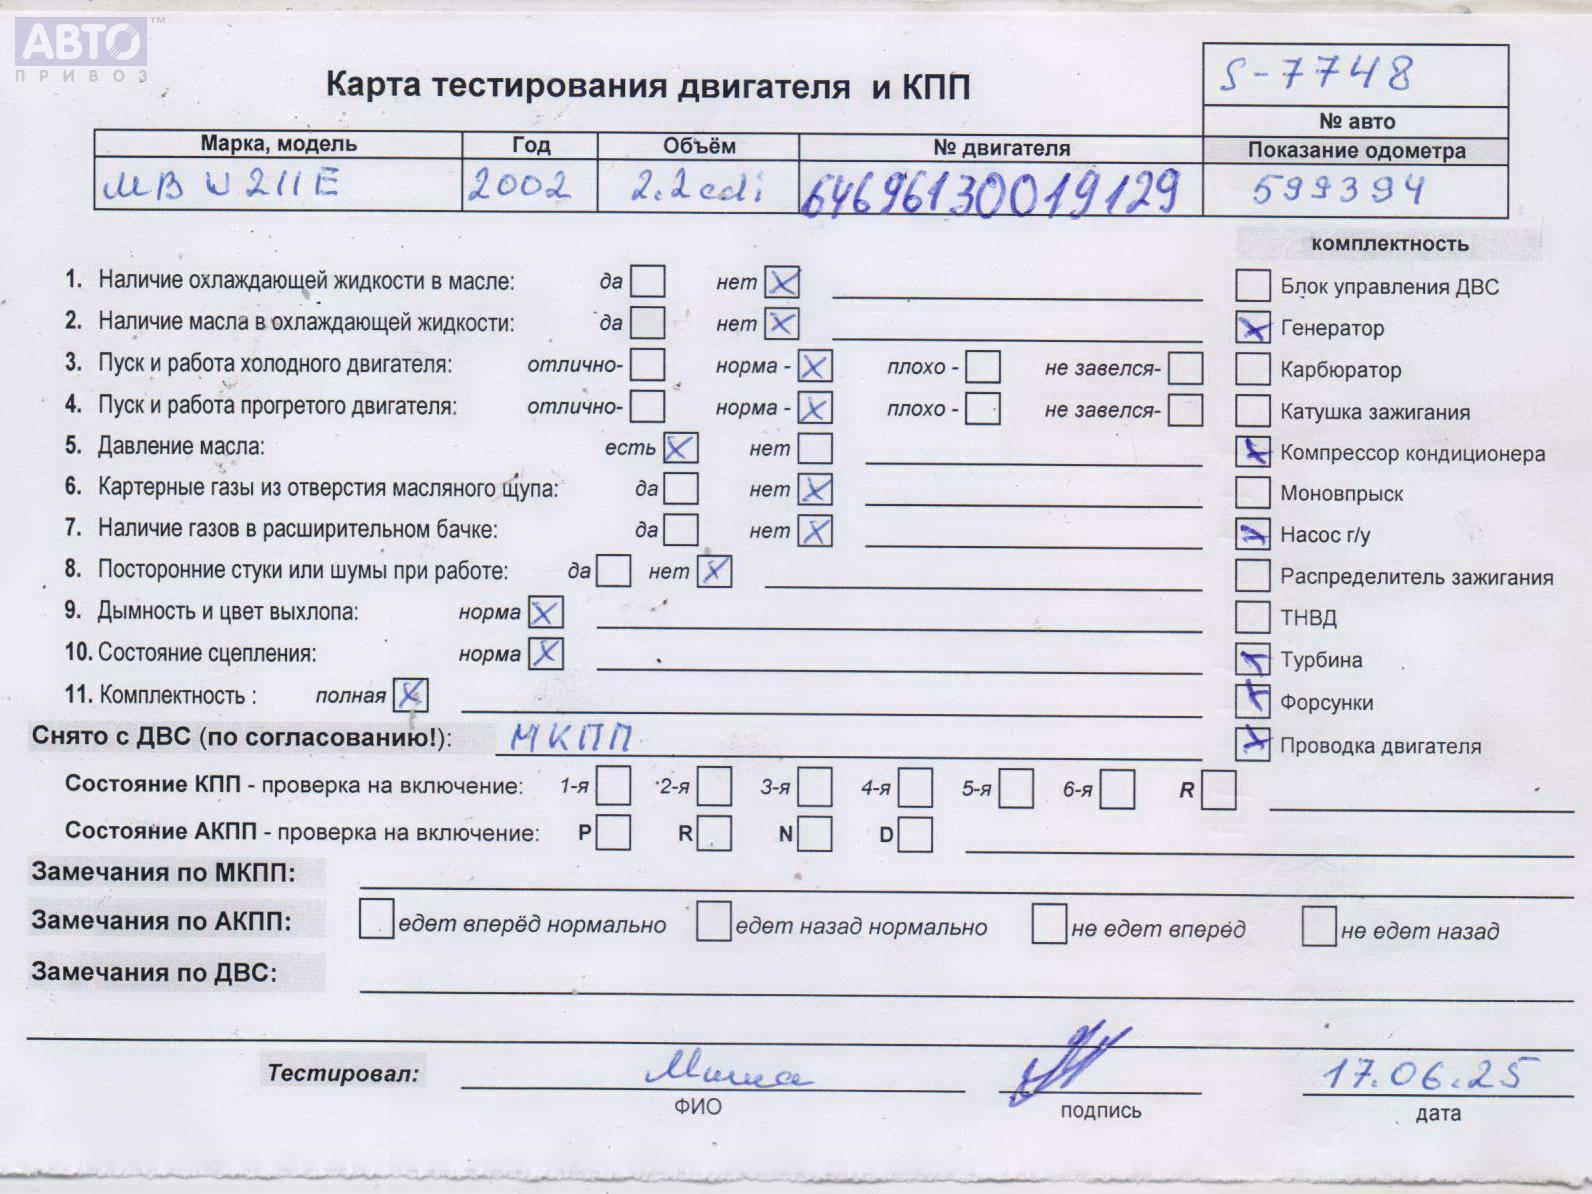 АВТО ™
ПРИВОЗ
Карта тестирования двигателя и КПП
S-7748
№ авто
Марка, модель Год Объём № двигателя Показание одометра
МВ W211E 2002 2.2cdi 64696130019129 599394
комплектность
1. Наличие охлаждающей жидкости в масле: да нет X
Блок управления ДВС
2. Наличие масла в охлаждающей жидкости: да нет X
X Генератор
3. Пуск и работа холодного двигателя: отлично- норма - X плохо - не завелся-
Карбюратор
4. Пуск и работа прогретого двигателя: отлично- норма - X плохо - не завелся-
Катушка зажигания
5. Давление масла: есть X нет
X Компрессор кондиционера
6. Картерные газы из отверстия масляного щупа: да нет X
Моновпрыск
7. Наличие газов в расширительном бачке: да нет X
X Насос г/у
8. Посторонние стуки или шумы при работе: да нет X
Распределитель зажигания
9. Дымность и цвет выхлопа: норма X
ТНВД
10. Состояние сцепления: норма X
X Турбина
11. Комплектность : полная X
X Форсунки
Снято с ДВС (по согласованию!): МКПП
X Проводка двигателя
Состояние КПП - проверка на включение: 1-я 2-я 3-я 4-я 5-я 6-я R
Состояние АКПП - проверка на включение: P R N D
Замечания по МКПП:
Замечания по АКПП: едет вперёд нормально едет назад нормально не едет вперёд не едет назад
Замечания по ДВС:
Тестировал: Миша 17.06.25
ФИО подпись дата